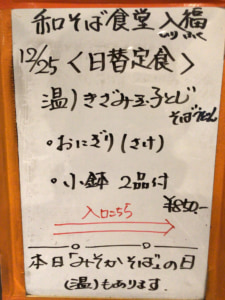 和そば食堂 入蕪
12/25 〈日替定食〉
温）きざみ玉子とじ
そばうどん
・おにぎり（さけ）
・小鉢 2品付
¥850.-
入口55
本日「みそかそば」の日
（温）もあります.